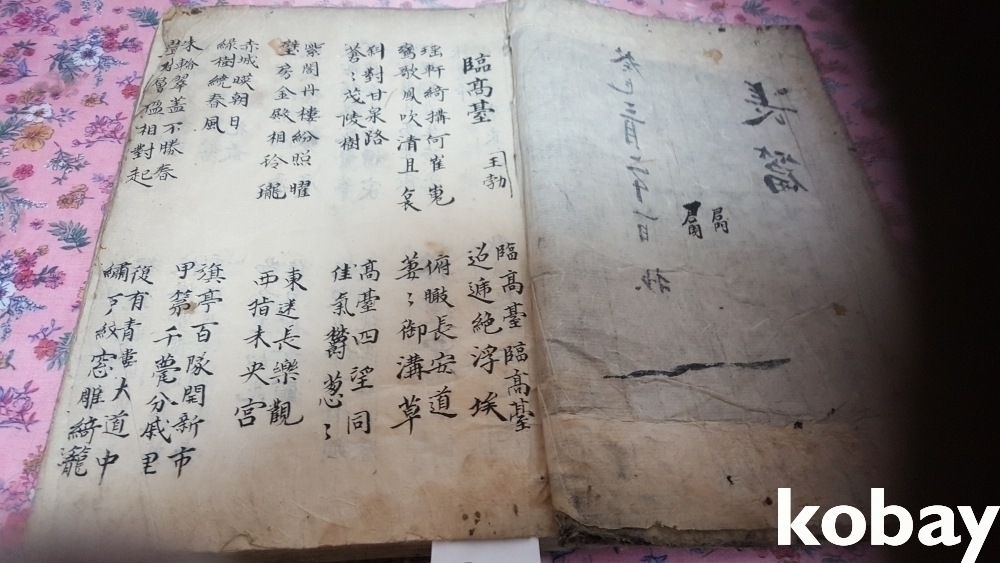 長篇
癸巳三月
抄
臨高臺
王勃
臨高臺臨高臺
迢遞絕浮埃
瑶軒綺搆何崔嵬
鸞歌鳳吹清且哀
俯瞰長安道
萋〻御溝草
斜對甘泉路
蒼〻茂陵樹
高臺四望同
佳氣欝蔥〻
紫閣丹樓紛照曜
璧房金殿相玲瓏
東迷長樂觀
西指未央宮
赤城暎朝日
綠樹繞春風
旗亭百隊開新市
甲第千甍分戚里
朱輪翠盖不勝春
疊榭層楹相對起
復有青大道中
繡戶紋窓雕綺櫳
kobay